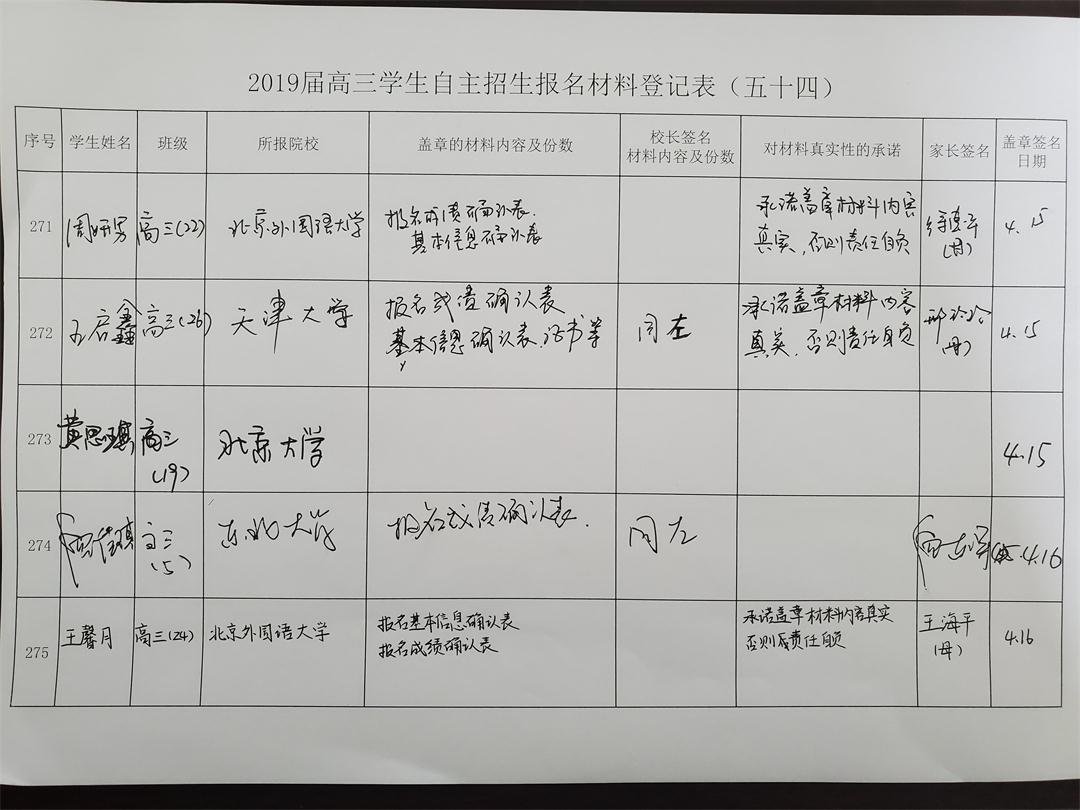 2019届高三学生自主招生报名材料登记表（五十四）
序号 学生姓名 班级 所报院校 盖章的材料内容及份数 校长签名 材料内容及份数 对材料真实性的承诺 家长签名 盖章签名 日期
271 高三(22) 北京外国语大学 报名成绩确认表. 承诺盖章材料内容 4.15
基本信息确认表 真实,否则责任自负 (母)
272 王启鑫 高三(26) 天津大学 报名成绩确认表 同左 承诺盖章材料内容 邢玲玲 4.15
基本信息确认表,证书等 真实,否则责任自负 (母)
273 黄思琪 高三 北京大学 4.15
(19)
274 高三 东北大学 报名成绩确认表. 同左 4.16
(5)
275 王馨月 高三(24) 北京外国语大学 报名基本信息确认表 承诺盖章材料内容真实 王海平 4.16
报名成绩确认表 否则后责任自负 (母)